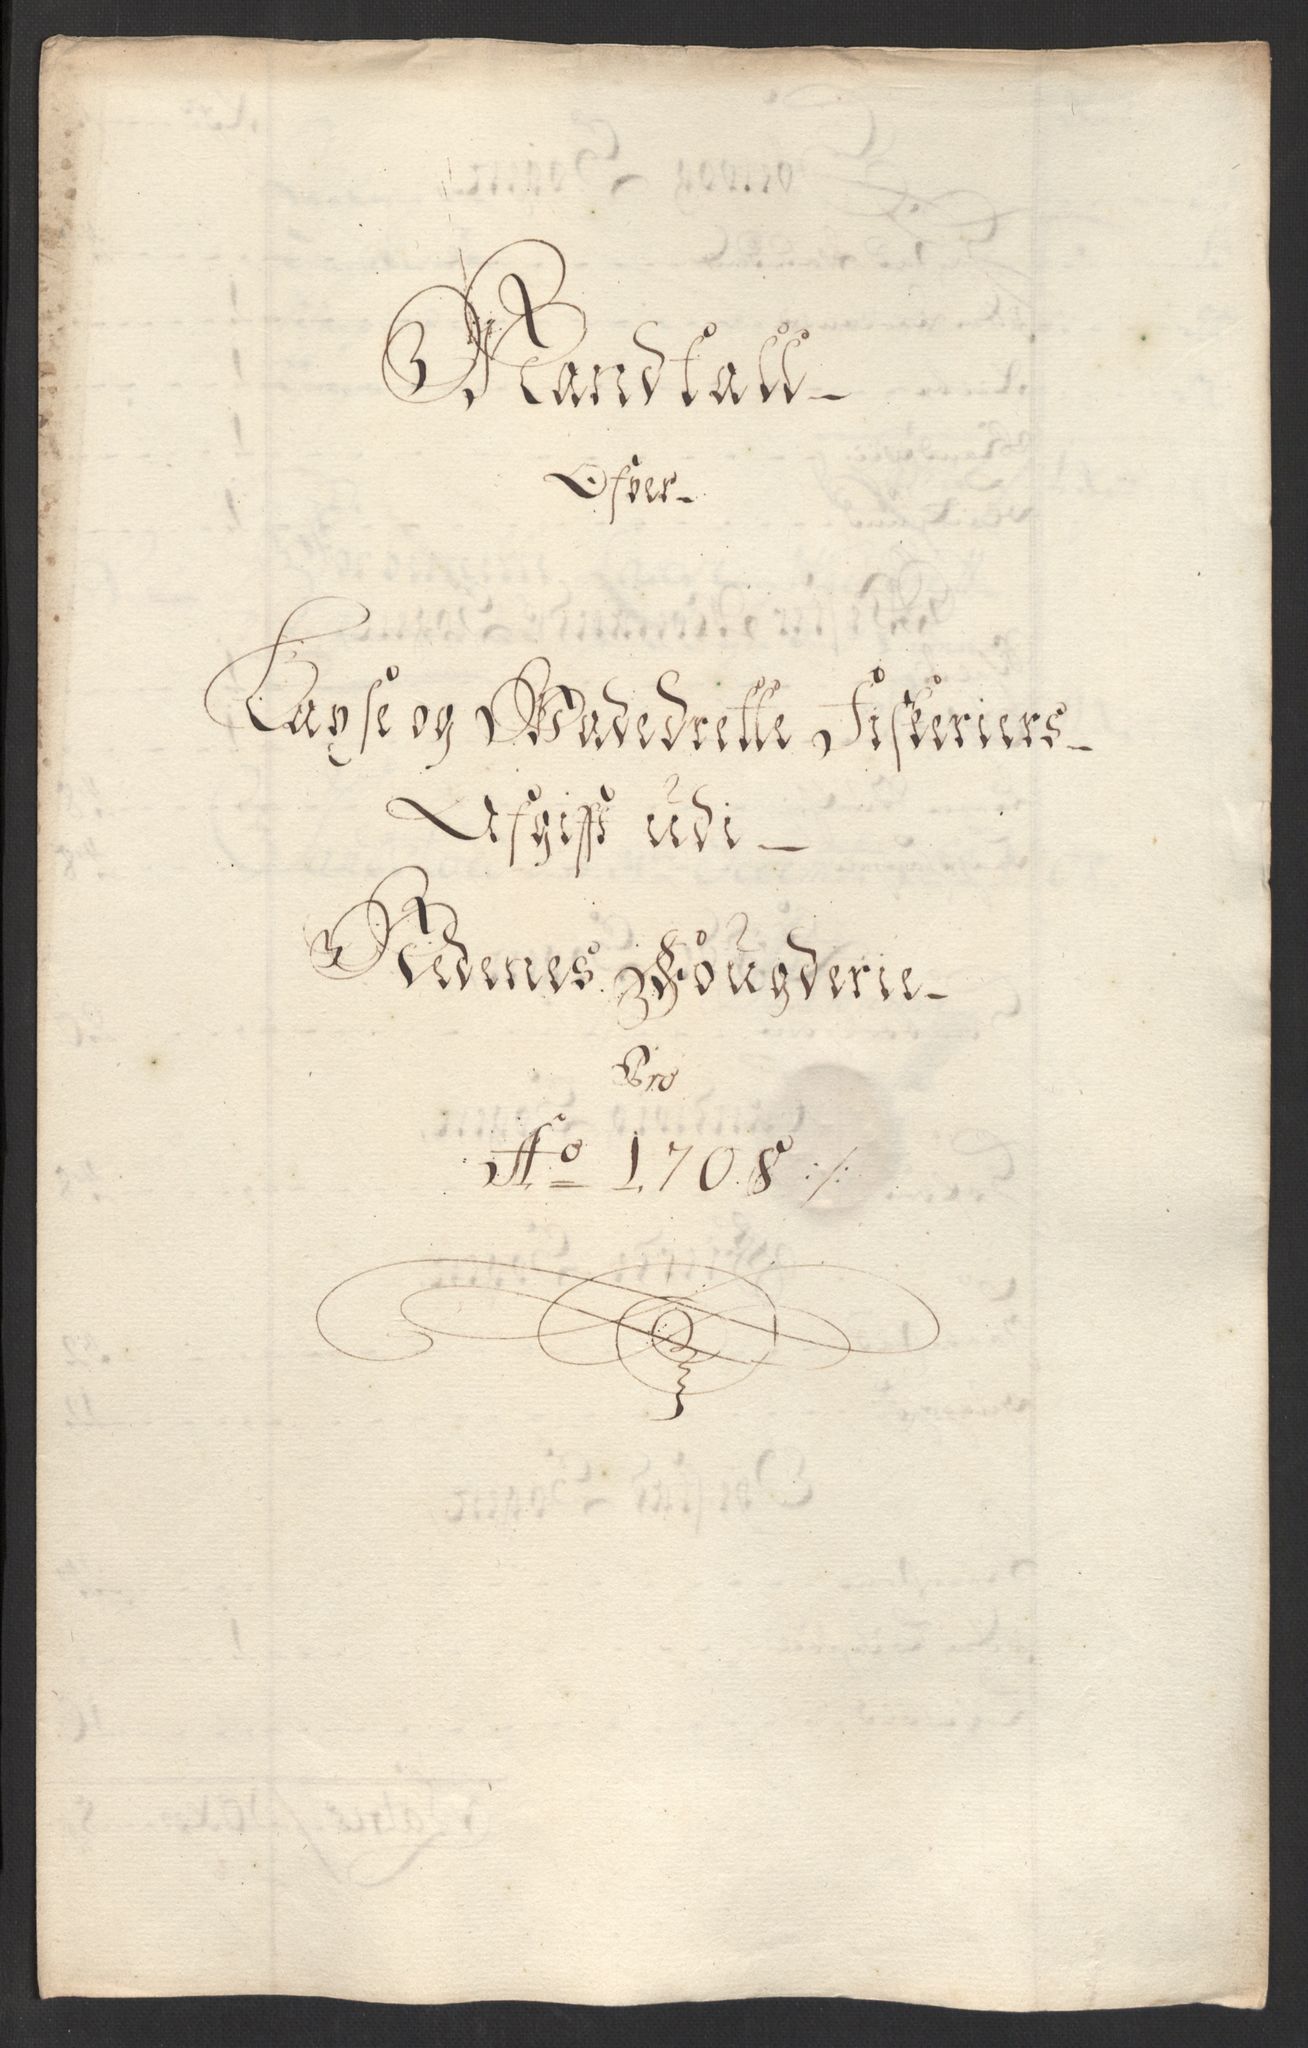 Mandtall
Ofver
Laxse og Wadedrette Fiskeriers
Afgifft udi
Nedenes Fougderie
Pro
Ao 1708 ./.